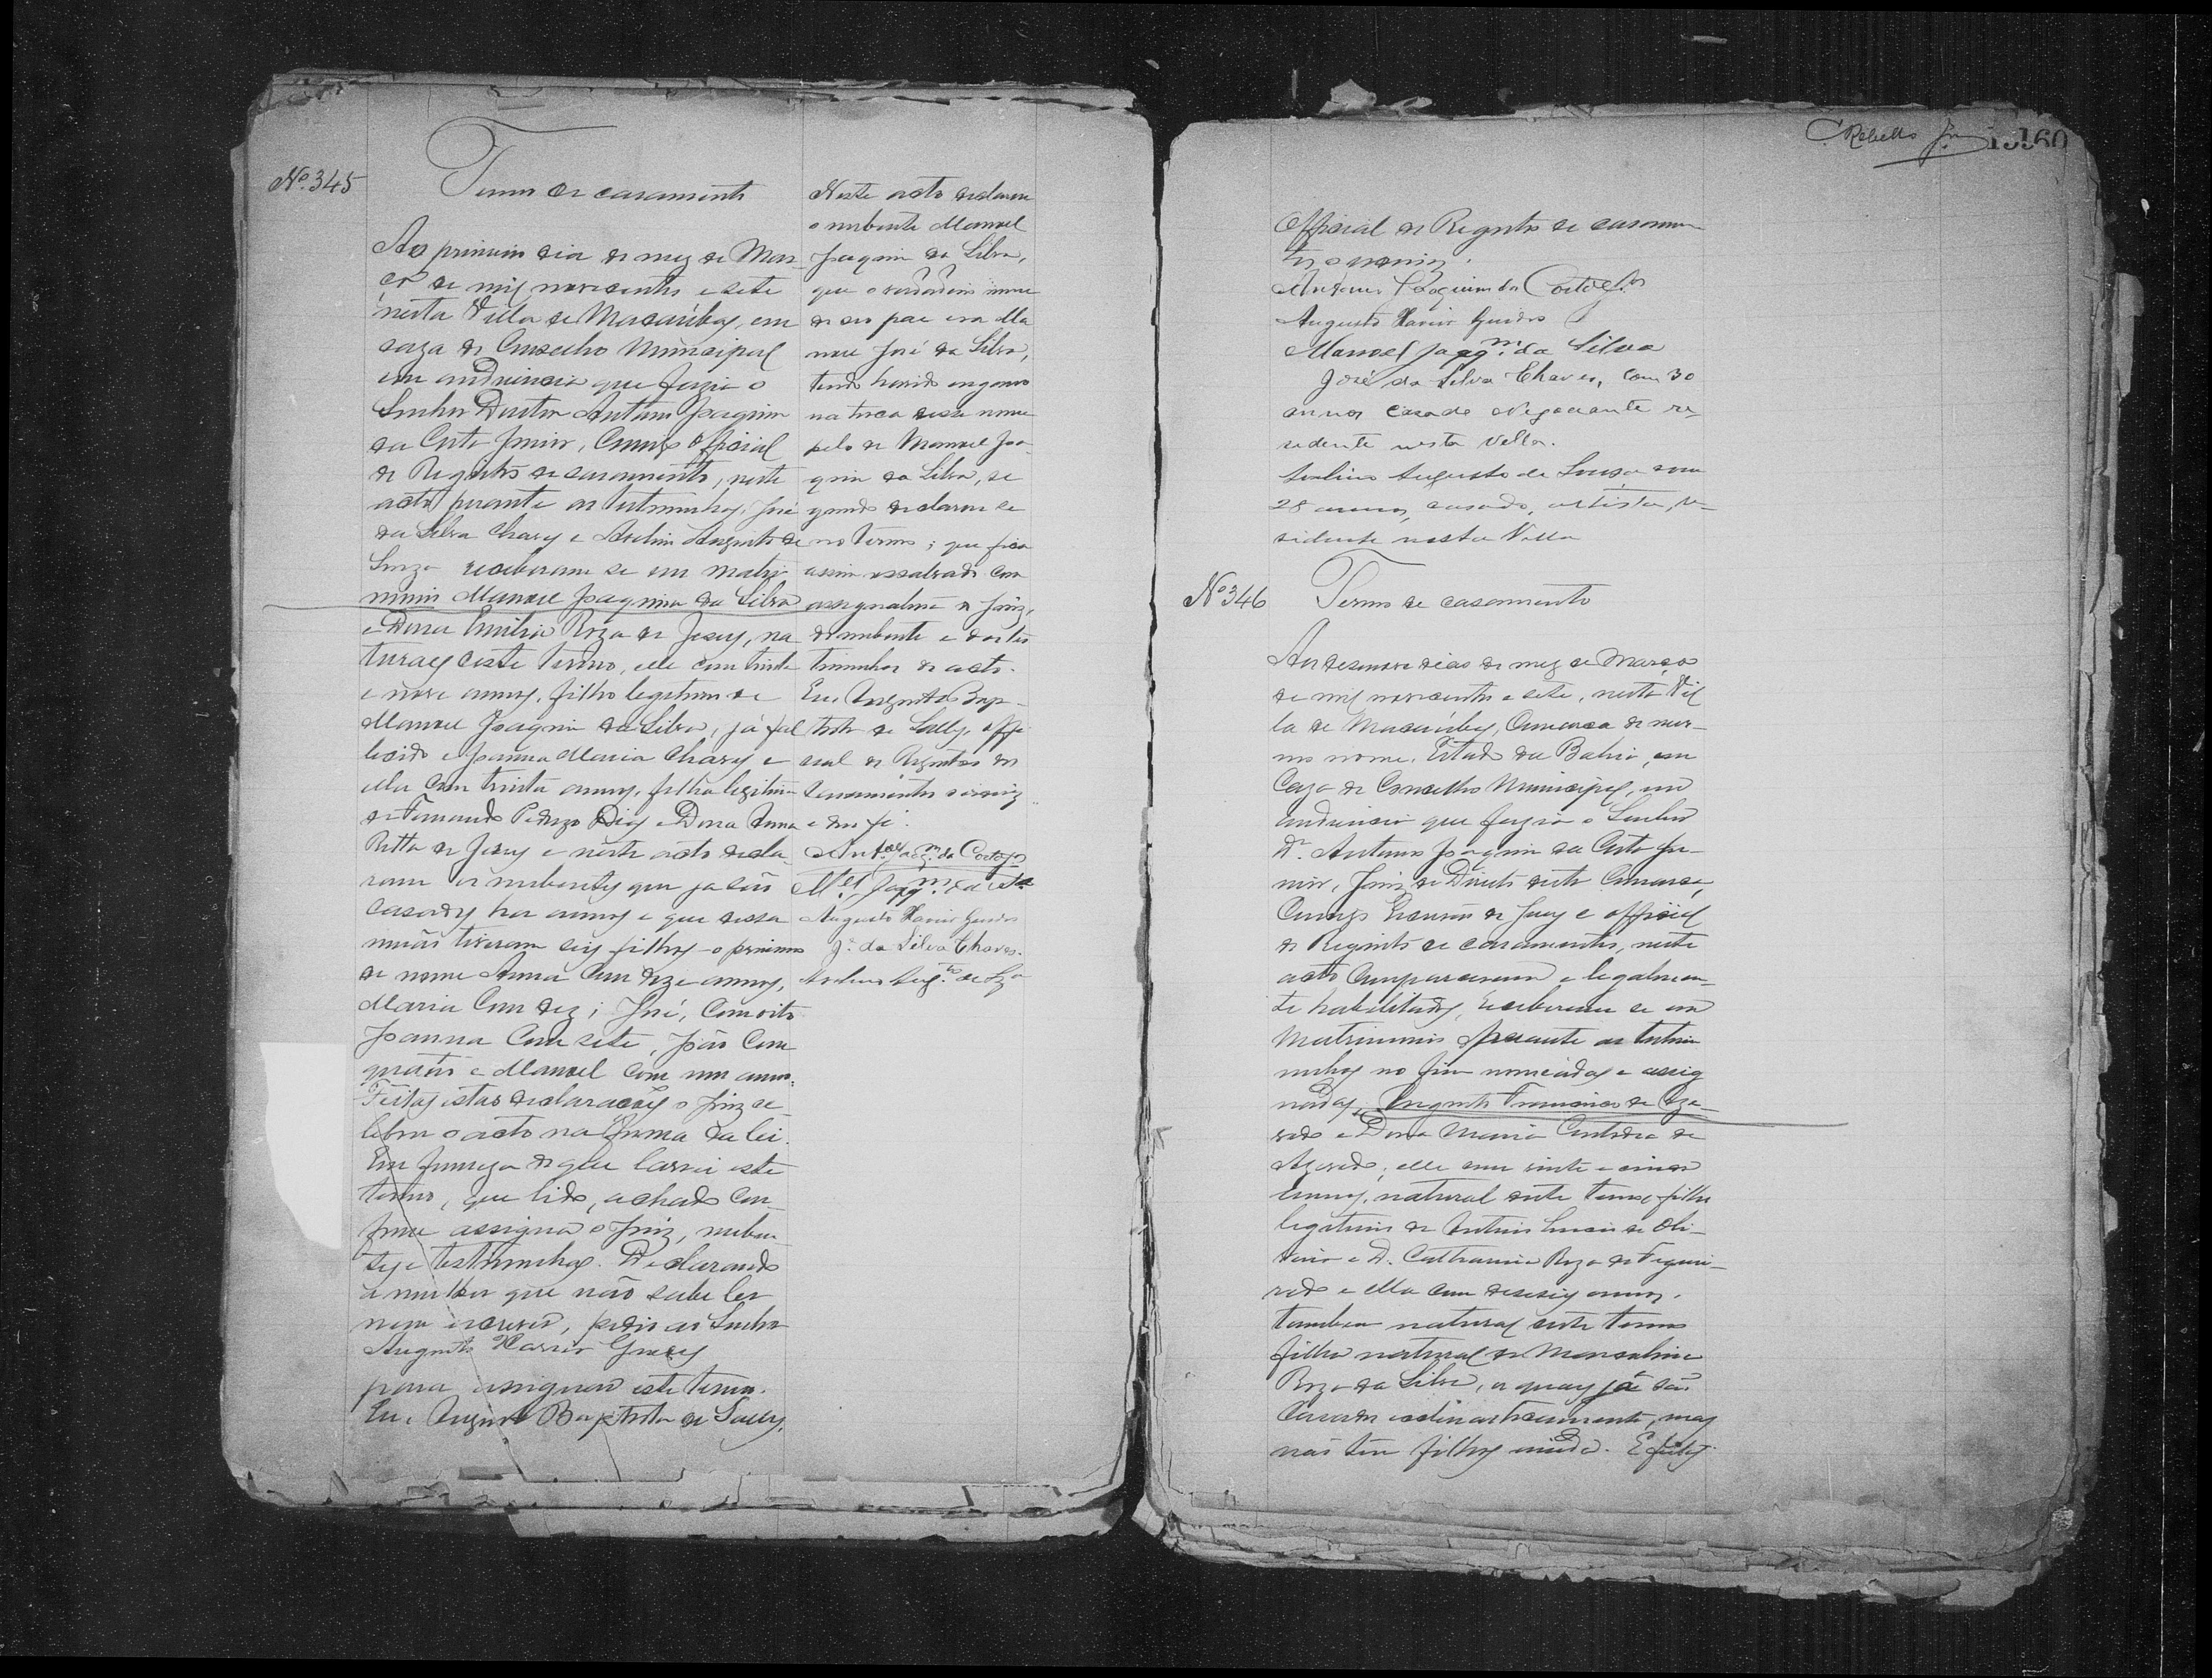 Nº 345
Termo de casamento
Ao primeiro dia do mez de Mar-
ço de mil novecentos e sete
nesta Villa de Macaúbas, em
caza do Conselho Municipal
em audiencia que fazia o
Senhor Doutor Antonio Joaquim
da Costa Junior, Commigo Official
do Registro de casamentos, neste
acto perante as testimunhas José
da Silva Chaves e Avelino Augusto de
Souza receberam se em matri-
monio Manoel Joaquim da Silva
e Dona Emilia Roza de Jesus, na
turaes deste termo, elle com trinta
e nove annos, filho legitimo de
Manoel Joaquim da Silva, já fal
lecido e Joanna Maria Chaves e
ella com trinta annos, filha legitima
de Fernando Pedrozo Dias e Dona Anna
Ritta de Jesus e neste acto decla-
raram os nubentes que ja são
casados ha annos e que dessa
união tiveram seis filhos - o primeiro
de nome Anna com doze annos,
Maria com dez; José, com oito
Joanna com sete, João com
quatro e Manoel com um anno.
Feitas estas declarações o Juiz ce-
lebrou o acto na forma da lei.
Em firmeza do que lavrei este
termo, que lido, achado con-
forme assigna o Juiz, nuben-
tes e testimunhas. Declarando
a mulher que não sabe ler
nem escrever, pedio ao Senhor
Augusto Xavier Guedes
para assignar este termo.
Eu, Augusto Baptista de Salles,
Neste acto declarou
o nubente Manoel
Joaquim da Silva,
que o verdadeiro nome
de seu pae era Ma
noel José da Silva,
tendo havido engano
na troca desse nome
pelo de Manoel Joa-
quim da Silva, se
gundo declarou se
no termo; que fica
assim ressalvado com
assignatura do Juiz,
do nubente e das tes
timunhas do acto.
Eu, Augusto Bap-
tista de Salles, offi
cial do Registro dos
casamentos escrevi
e dou fé.
Antº Joaqm da Costa Jor
Mel Joaqm da Silva
Augusto Xavier Guedes
Jé da Silva Chaves.
Avelino Augto de Sza
C. Rebello Jor
160
Official do Registro de casamen-
tos o escrevi.
Antonio Joaquim da Costa Jor
Augusto Xavier Guedes
Manoel Joaqm da Silva
José da Silva Chaves, com 30
annos casado Negociante re-
sidente nesta Villa.
Avelino Augusto de Souza com
28 annos, casado, artista, re-
sidente nesta Villa
Nº 346
Termo de casamento
Aos desenove dias do mez de Março
de mil novecentos e sete, nesta Vil
la de Macaúbas, Comarca do mes-
mo nome, Estado da Bahia, em
Caza do Conselho Municipal, em
audiencia que fazia o Senhor
Dr. Antonio Joaquim da Costa Ju-
nior, Juiz de Direito desta Comarca,
Commigo Escrivão de Juiz e official
do Registro de casamentos, neste
acto compareceram e legalmen-
te habilitados, receberam se em
Matrimonio perante as testimu
nhas no fim nomeadas e assig
nadas, Augusto Francisco de Aze-
vedo e Dona Maria Custodia de
Azevedo; elle com vinte e cinco
annos, natural deste termo, filho
legitimo de Antonio de Oli-
veira e D. Catharina Roza de Figuei-
redo e ella com deseseis annos,
tambem natural deste termo
filha natural de Marcolina
Roza da Silva, os quaes já são
casados eclesiasticamente, mas
não têm filhos ainda. E feitas